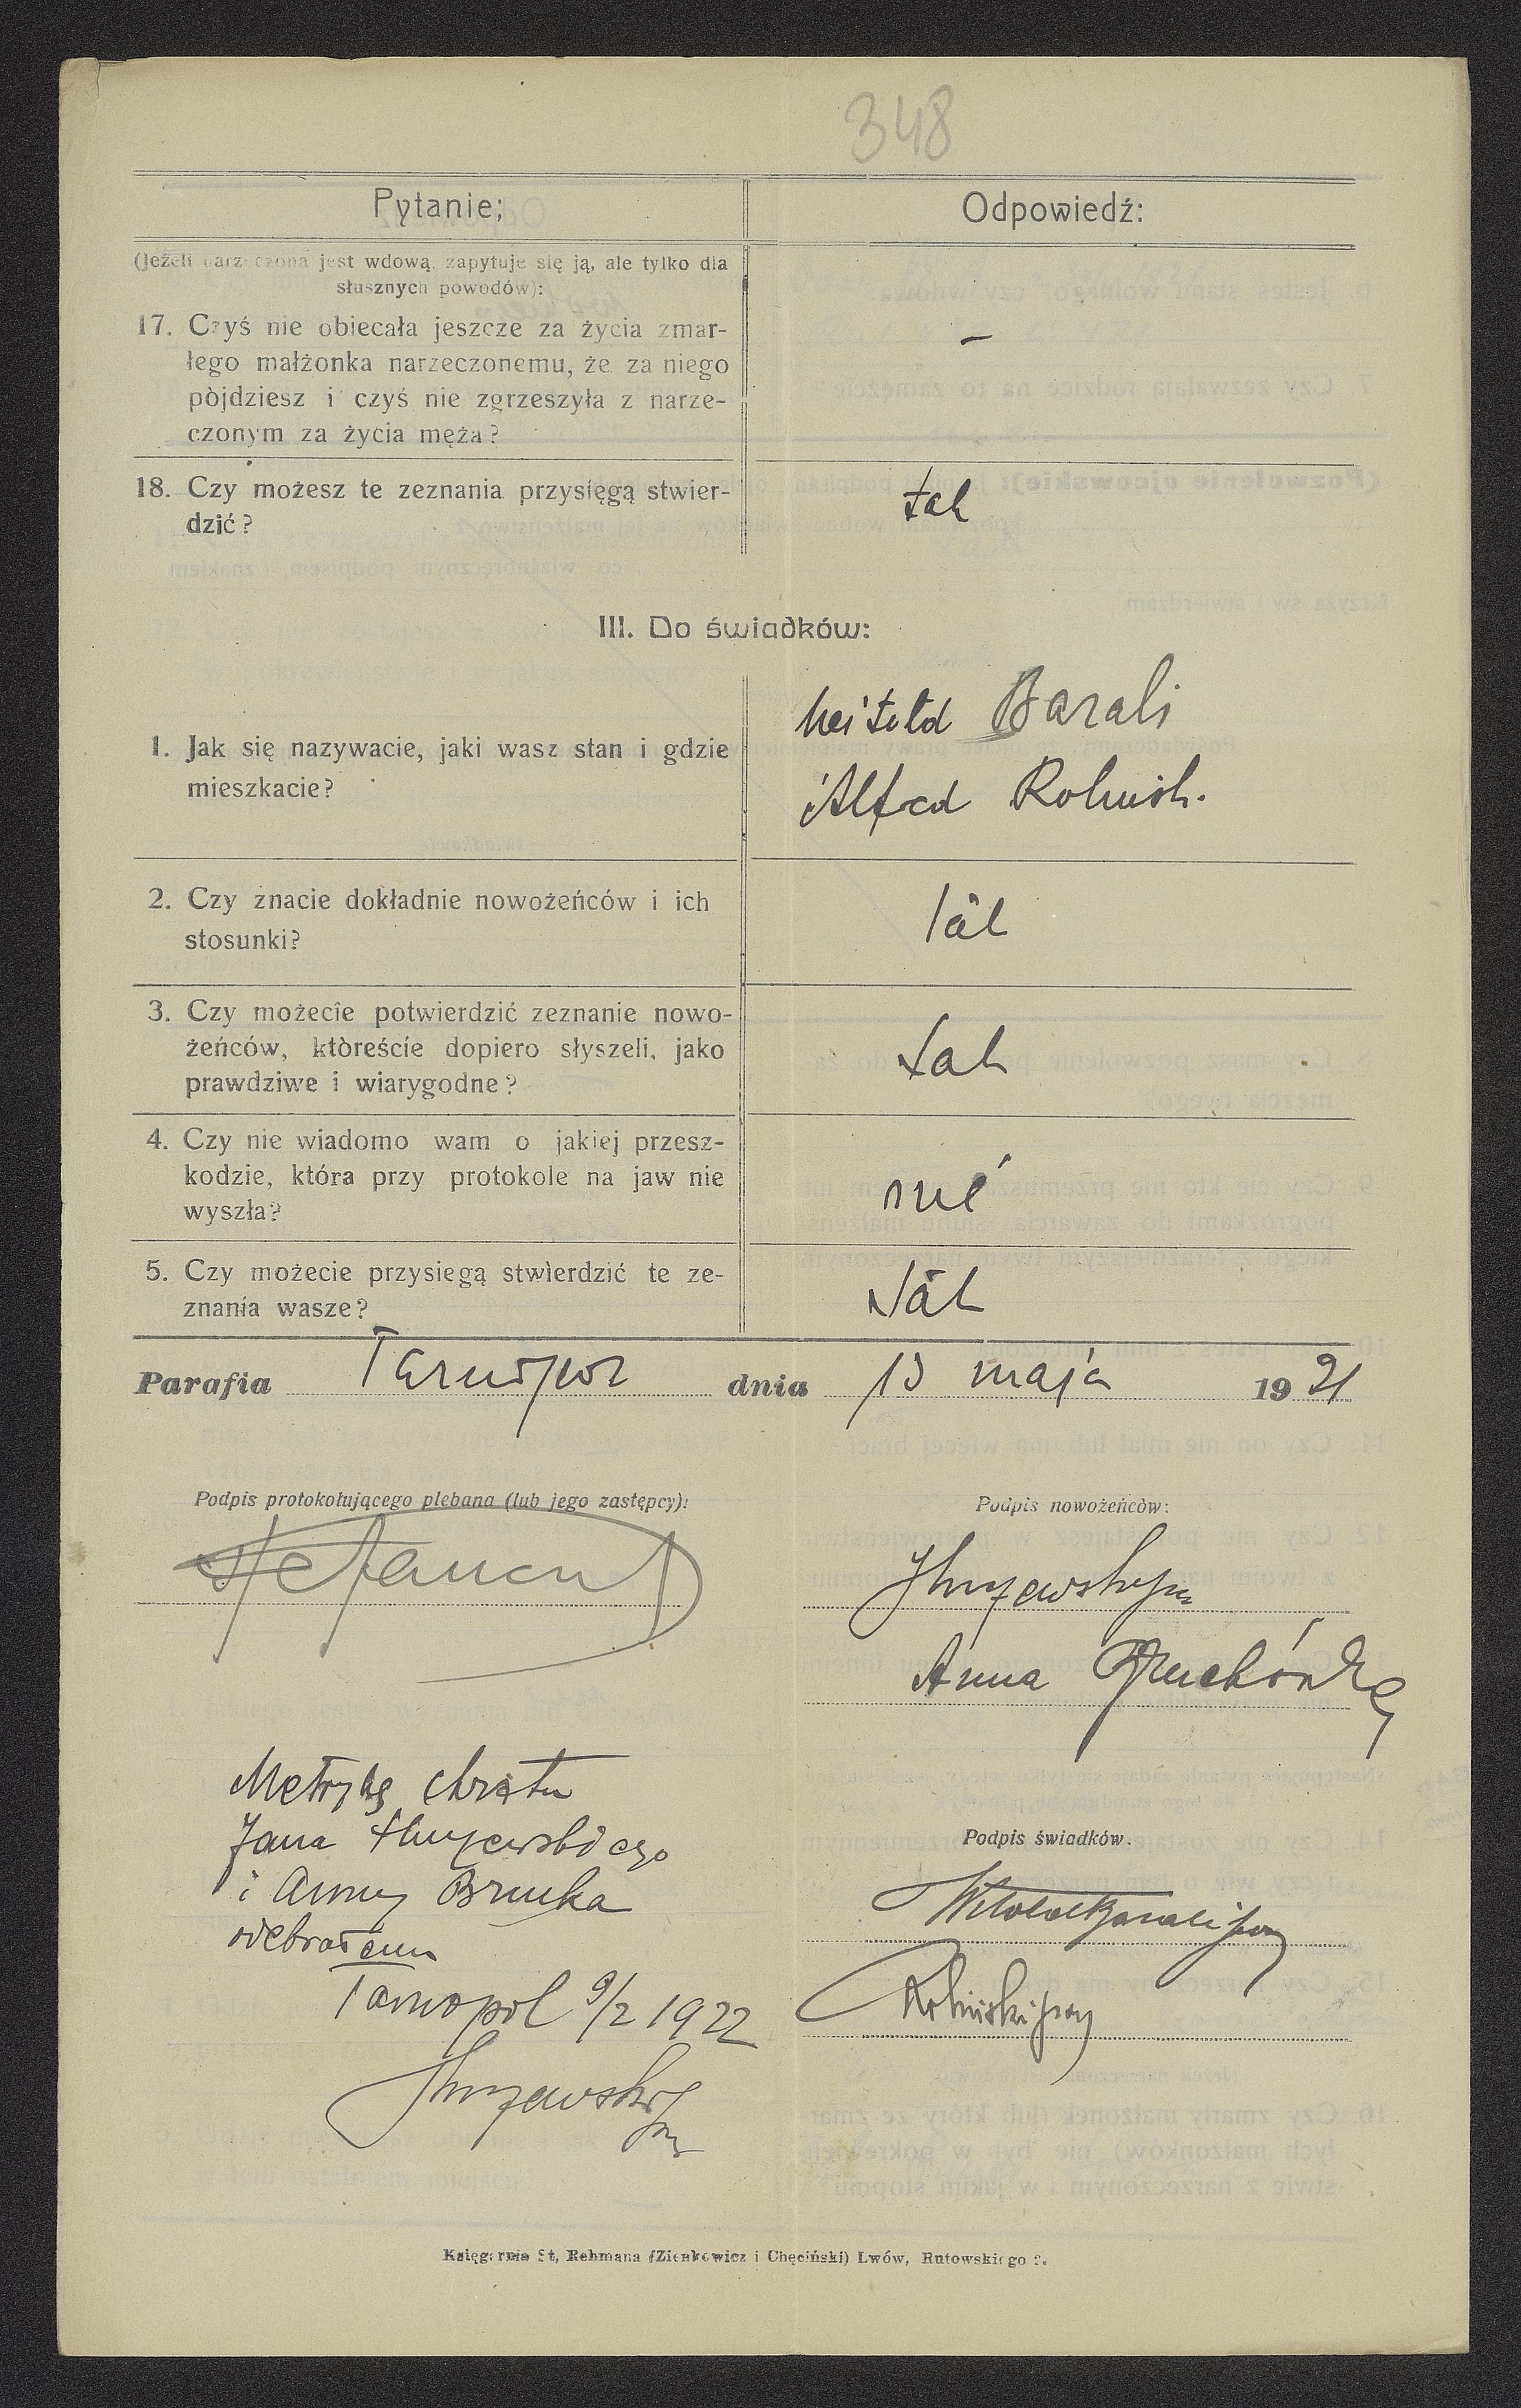 348
Pytanie;
Odpowiedź:
(Jeżeli narzeczona jest wdową, zapytuje się ją, ale tylko dla
słusznych powodów):
17. Czyś nie obiecała jeszcze za życia zmar-
łego małżonka narzeczonemu, że za niego
pòjdziesz i czyś nie zgrzeszyła z narze-
czonym za życia męża?
–
18. Czy możesz te zeznania przysięgą stwier-
dzić?
tak
III. Do świadków:
1. Jak się nazywacie, jaki wasz stan i gdzie
mieszkacie?
Witold Barali
Alfred
2. Czy znacie dokładnie nowożeńców i ich
stosunki?
tak
3. Czy możecie potwierdzić zeznanie nowo-
żeńców, któreście dopiero słyszeli, jako
prawdziwe i wiarygodne?
tak
4. Czy nie wiadomo wam o jakiej przesz-
kodzie, która przy protokole na jaw nie
wyszła?
nie
5. Czy możecie przysiegą stwierdzić te ze-
znania wasze?
tak
Parafia Tarnopol dnia 13 maja 1921
Podpis protokołującego plebana (lub jego zastępcy):
Podpis nowożeńców:
Anna
Metrykę chrztu
Jana
i Anny Brucka
odebrałem
Tarnopol 9/2 1922
Podpis świadków.
Witold Barali
Księgarnia St, Rehmana (Zienkowicz i Chęciński) Lwów, Rutowskiego